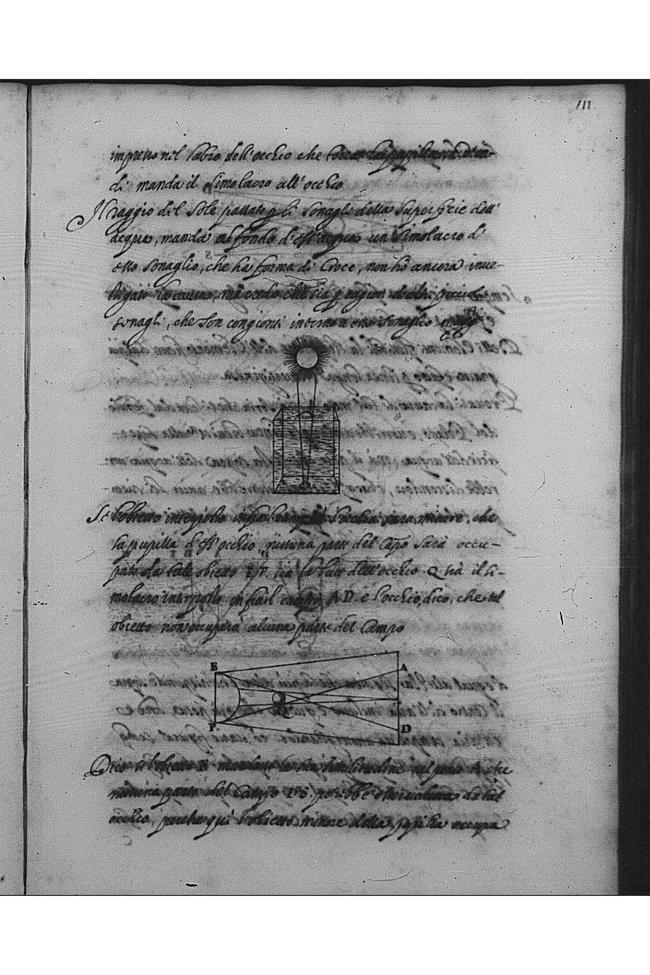 111
impresso nel labro dell'occhio che
di manda il simolacro all'occhio
Il raggio del Sole passato p gli sonagli della superficie dell'
acqua, manda al fondo d'ess'acqua un simolacro d'
esso sonaglio, che ha forma di Croce, non hò ancora inue-
stigato la causa, ma credo che sia p ragion d'altri piccioli
sonagli, che son congionti intorno a esso sonaglio
Se l'obietto interposto infra'l campo e l'occhio sara minore, che
la pupilla d'ess'occhio, nissuna parte del Capo sarà occu-
pata da tale obietto E.P. sia la luce dell'occhio Q sia il si-
molacro interposto infra il campo A.D. e l'occhio, dico, che tal
obietto non occuparà alcuna parte del Campo
E A
Q
P D
nissuna parte del Campo
occhio, perche qui l'obietto minore della pupilla occupa